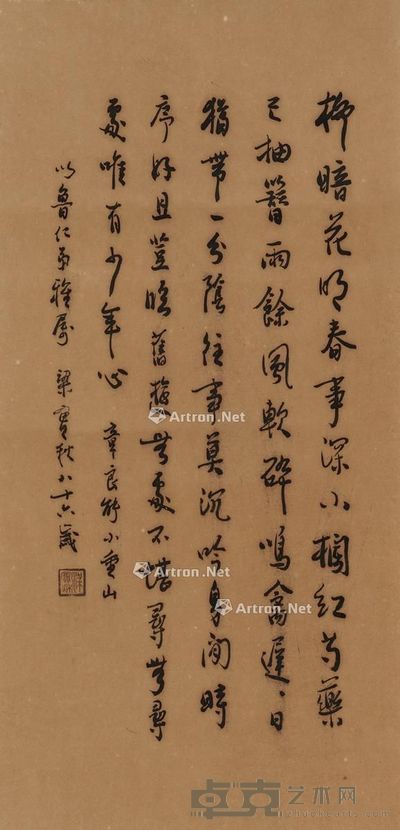 柳暗花明春事深小欄紅芍藥
已抽簪雨餘風軟碎鳴禽遲〻日
猶帶一分陰往事莫沉吟身閒時
序好且登臨舊遊無處不堪尋無尋
處唯有少年心 章良能小重山
以魯仁弟雅屬 梁實秋八十六歲
Artron.Net
Artron.Net
Artron.Net
Artron.Net
卓克艺术网